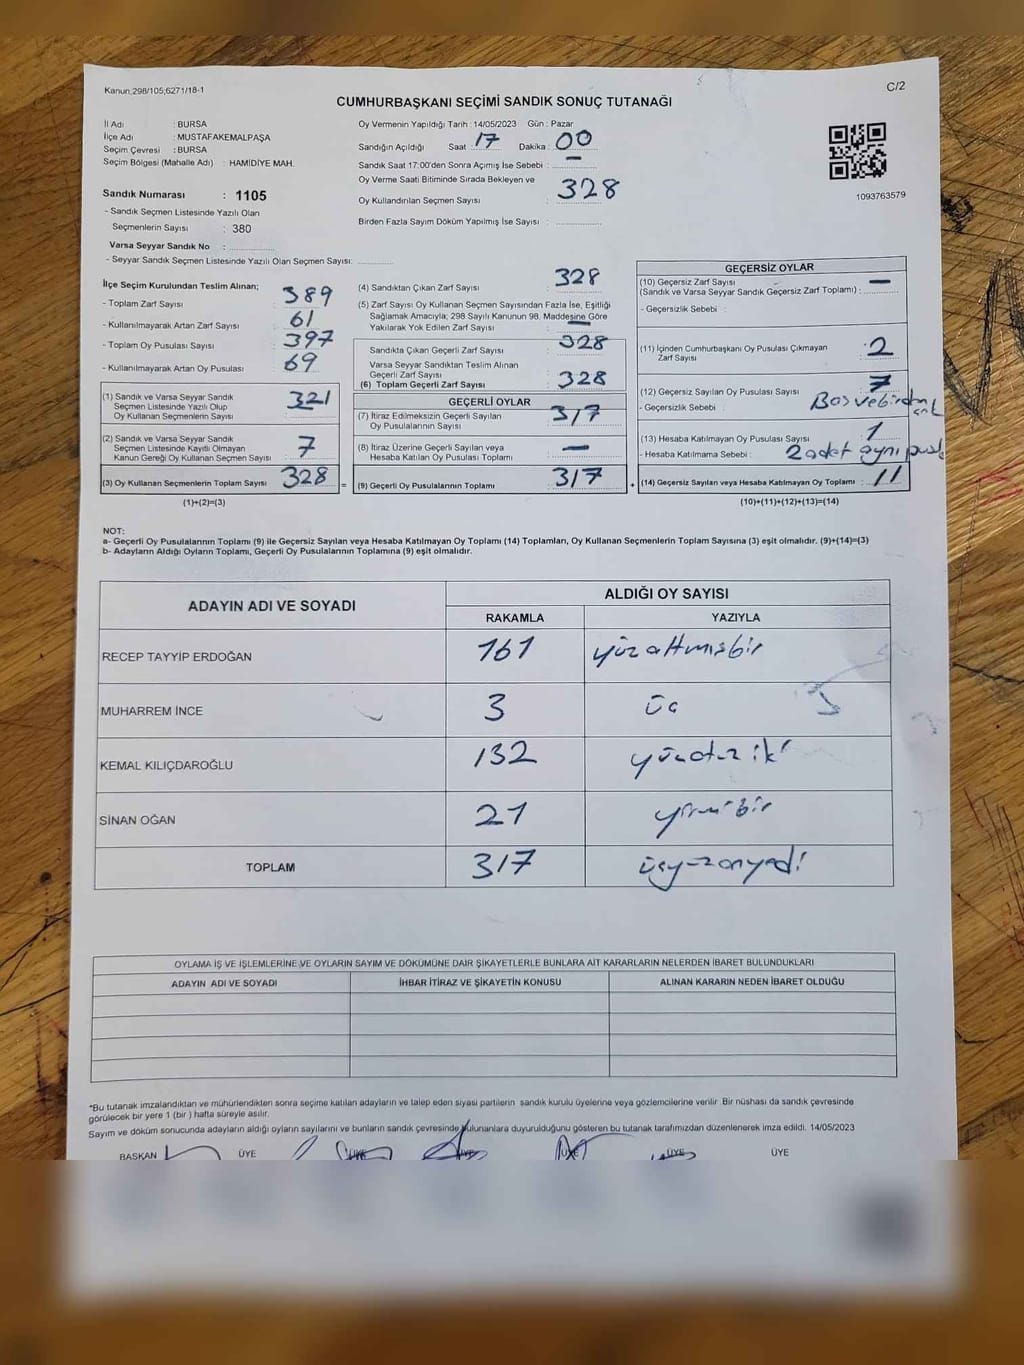 Kanun,298/105;6271/18-1
C/2
CUMHURBAŞKANI SEÇİMİ SANDIK SONUÇ TUTANAĞI
İl Adı : BURSA
İlçe Adı : MUSTAFAKEMALPAŞA
Seçim Çevresi : BURSA
Seçim Bölgesi (Mahalle Adı) : HAMİDİYE MAH.
Sandık Numarası : 1105
- Sandık Seçmen Listesinde Yazılı Olan
Seçmenlerin Sayısı : 380
Varsa Seyyar Sandık No :
- Seyyar Sandık Seçmen Listesinde Yazılı Olan Seçmen Sayısı:
Oy Vermenin Yapıldığı Tarih : 14/05/2023 Gün : Pazar
Sandığın Açıldığı Saat : 17 Dakika : 00
Sandık Saat 17:00'den Sonra Açımış İse Sebebi : —
Oy Verme Saati Bitiminde Sırada Bekleyen ve
Oy Kullandırılan Seçmen Sayısı : 328
Birden Fazla Sayım Döküm Yapılmış İse Sayısı :
1093763579
İlçe Seçim Kurulundan Teslim Alınan;
- Toplam Zarf Sayısı : 389
- Kullanılmayarak Artan Zarf Sayısı : 61
- Toplam Oy Pusulası Sayısı : 397
- Kullanılmayarak Artan Oy Pusulası : 69
(1) Sandık ve Varsa Seyyar Sandık
Seçmen Listesinde Yazılı Olup
Oy Kullanan Seçmenlerin Sayısı : 321
(2) Sandık ve Varsa Seyyar Sandık
Seçmen Listesinde Kayıtlı Olmayan
Kanun Gereği Oy Kullanan Seçmen Sayısı : 7
(3) Oy Kullanan Seçmenlerin Toplam Sayısı : 328 =
(1)+(2)=(3)
(4) Sandıktan Çıkan Zarf Sayısı : 328
(5) Zarf Sayısı Oy Kullanan Seçmen Sayısından Fazla İse, Eşitliği
Sağlamak Amacıyla; 298 Sayılı Kanunun 98. Maddesine Göre
Yakılarak Yok Edilen Zarf Sayısı : —
Sandıkta Çıkan Geçerli Zarf Sayısı : 328
Varsa Seyyar Sandıktan Teslim Alınan
Geçerli Zarf Sayısı
(6) Toplam Geçerli Zarf Sayısı : 328
GEÇERLİ OYLAR
(7) İtiraz Edilmeksizin Geçerli Sayılan
Oy Pusulalarının Sayısı : 317
(8) İtiraz Üzerine Geçerli Sayılan veya
Hesaba Katılan Oy Pusulası Toplamı : —
(9) Geçerli Oy Pusulalarının Toplamı : 317 +
GEÇERSİZ OYLAR
(10) Geçersiz Zarf Sayısı
(Sandık ve Varsa Seyyar Sandık Geçersiz Zarf Toplamı) : —
- Geçersizlik Sebebi :
(11) İçinden Cumhurbaşkanı Oy Pusulası Çıkmayan
Zarf Sayısı : 2
(12) Geçersiz Sayılan Oy Pusulası Sayısı : 7
- Geçersizlik Sebebi : Boş ve birden
(13) Hesaba Katılmayan Oy Pusulası Sayısı : 1
- Hesaba Katılmama Sebebi : 2 adet aynı
(14) Geçersiz Sayılan veya Hesaba Katılmayan Oy Toplamı : 11
(10)+(11)+(12)+(13)=(14)
NOT:
a- Geçerli Oy Pusulalarının Toplamı (9) ile Geçersiz Sayılan veya Hesaba Katılmayan Oy Toplamı (14) Toplamları, Oy Kullanan Seçmenlerin Toplam Sayısına (3) eşit olmalıdır. (9)+(14)=(3)
b- Adayların Aldığı Oyların Toplamı, Geçerli Oy Pusulalarının Toplamına (9) eşit olmalıdır.
ADAYIN ADI VE SOYADI
ALDIĞI OY SAYISI
RAKAMLA YAZIYLA
RECEP TAYYİP ERDOĞAN 161 yüzaltmışbir
MUHARREM İNCE 3 üç
KEMAL KILIÇDAROĞLU 132 yüzotuziki
SİNAN OĞAN 21 yirmibir
TOPLAM 317 üçyüzonyedi
OYLAMA İŞ VE İŞLEMLERİNE VE OYLARIN SAYIM VE DÖKÜMÜNE DAİR ŞİKAYETLERLE BUNLARA AİT KARARLARIN NELERDEN İBARET BULUNDUKLARI
ADAYIN ADI VE SOYADI İHBAR İTİRAZ VE ŞİKAYETİN KONUSU ALINAN KARARIN NEDEN İBARET OLDUĞU
*Bu tutanak imzalandıktan ve mühürlendikten sonra seçime katılan adayların ve talep eden siyasi partilerin sandık kurulu üyelerine veya gözlemcilerine verilir. Bir nüshası da sandık çevresinde
görülecek bir yere 1 (bir ) hafta süreyle asılır.
Sayım ve döküm sonucunda adayların aldığı oyların sayılarını ve bunların sandık çevresinde bulunanlara duyurulduğunu gösteren bu tutanak tarafımızdan düzenlenerek imza edildi. 14/05/2023
BAŞKAN ÜYE ÜYE ÜYE ÜYE ÜYE ÜYE